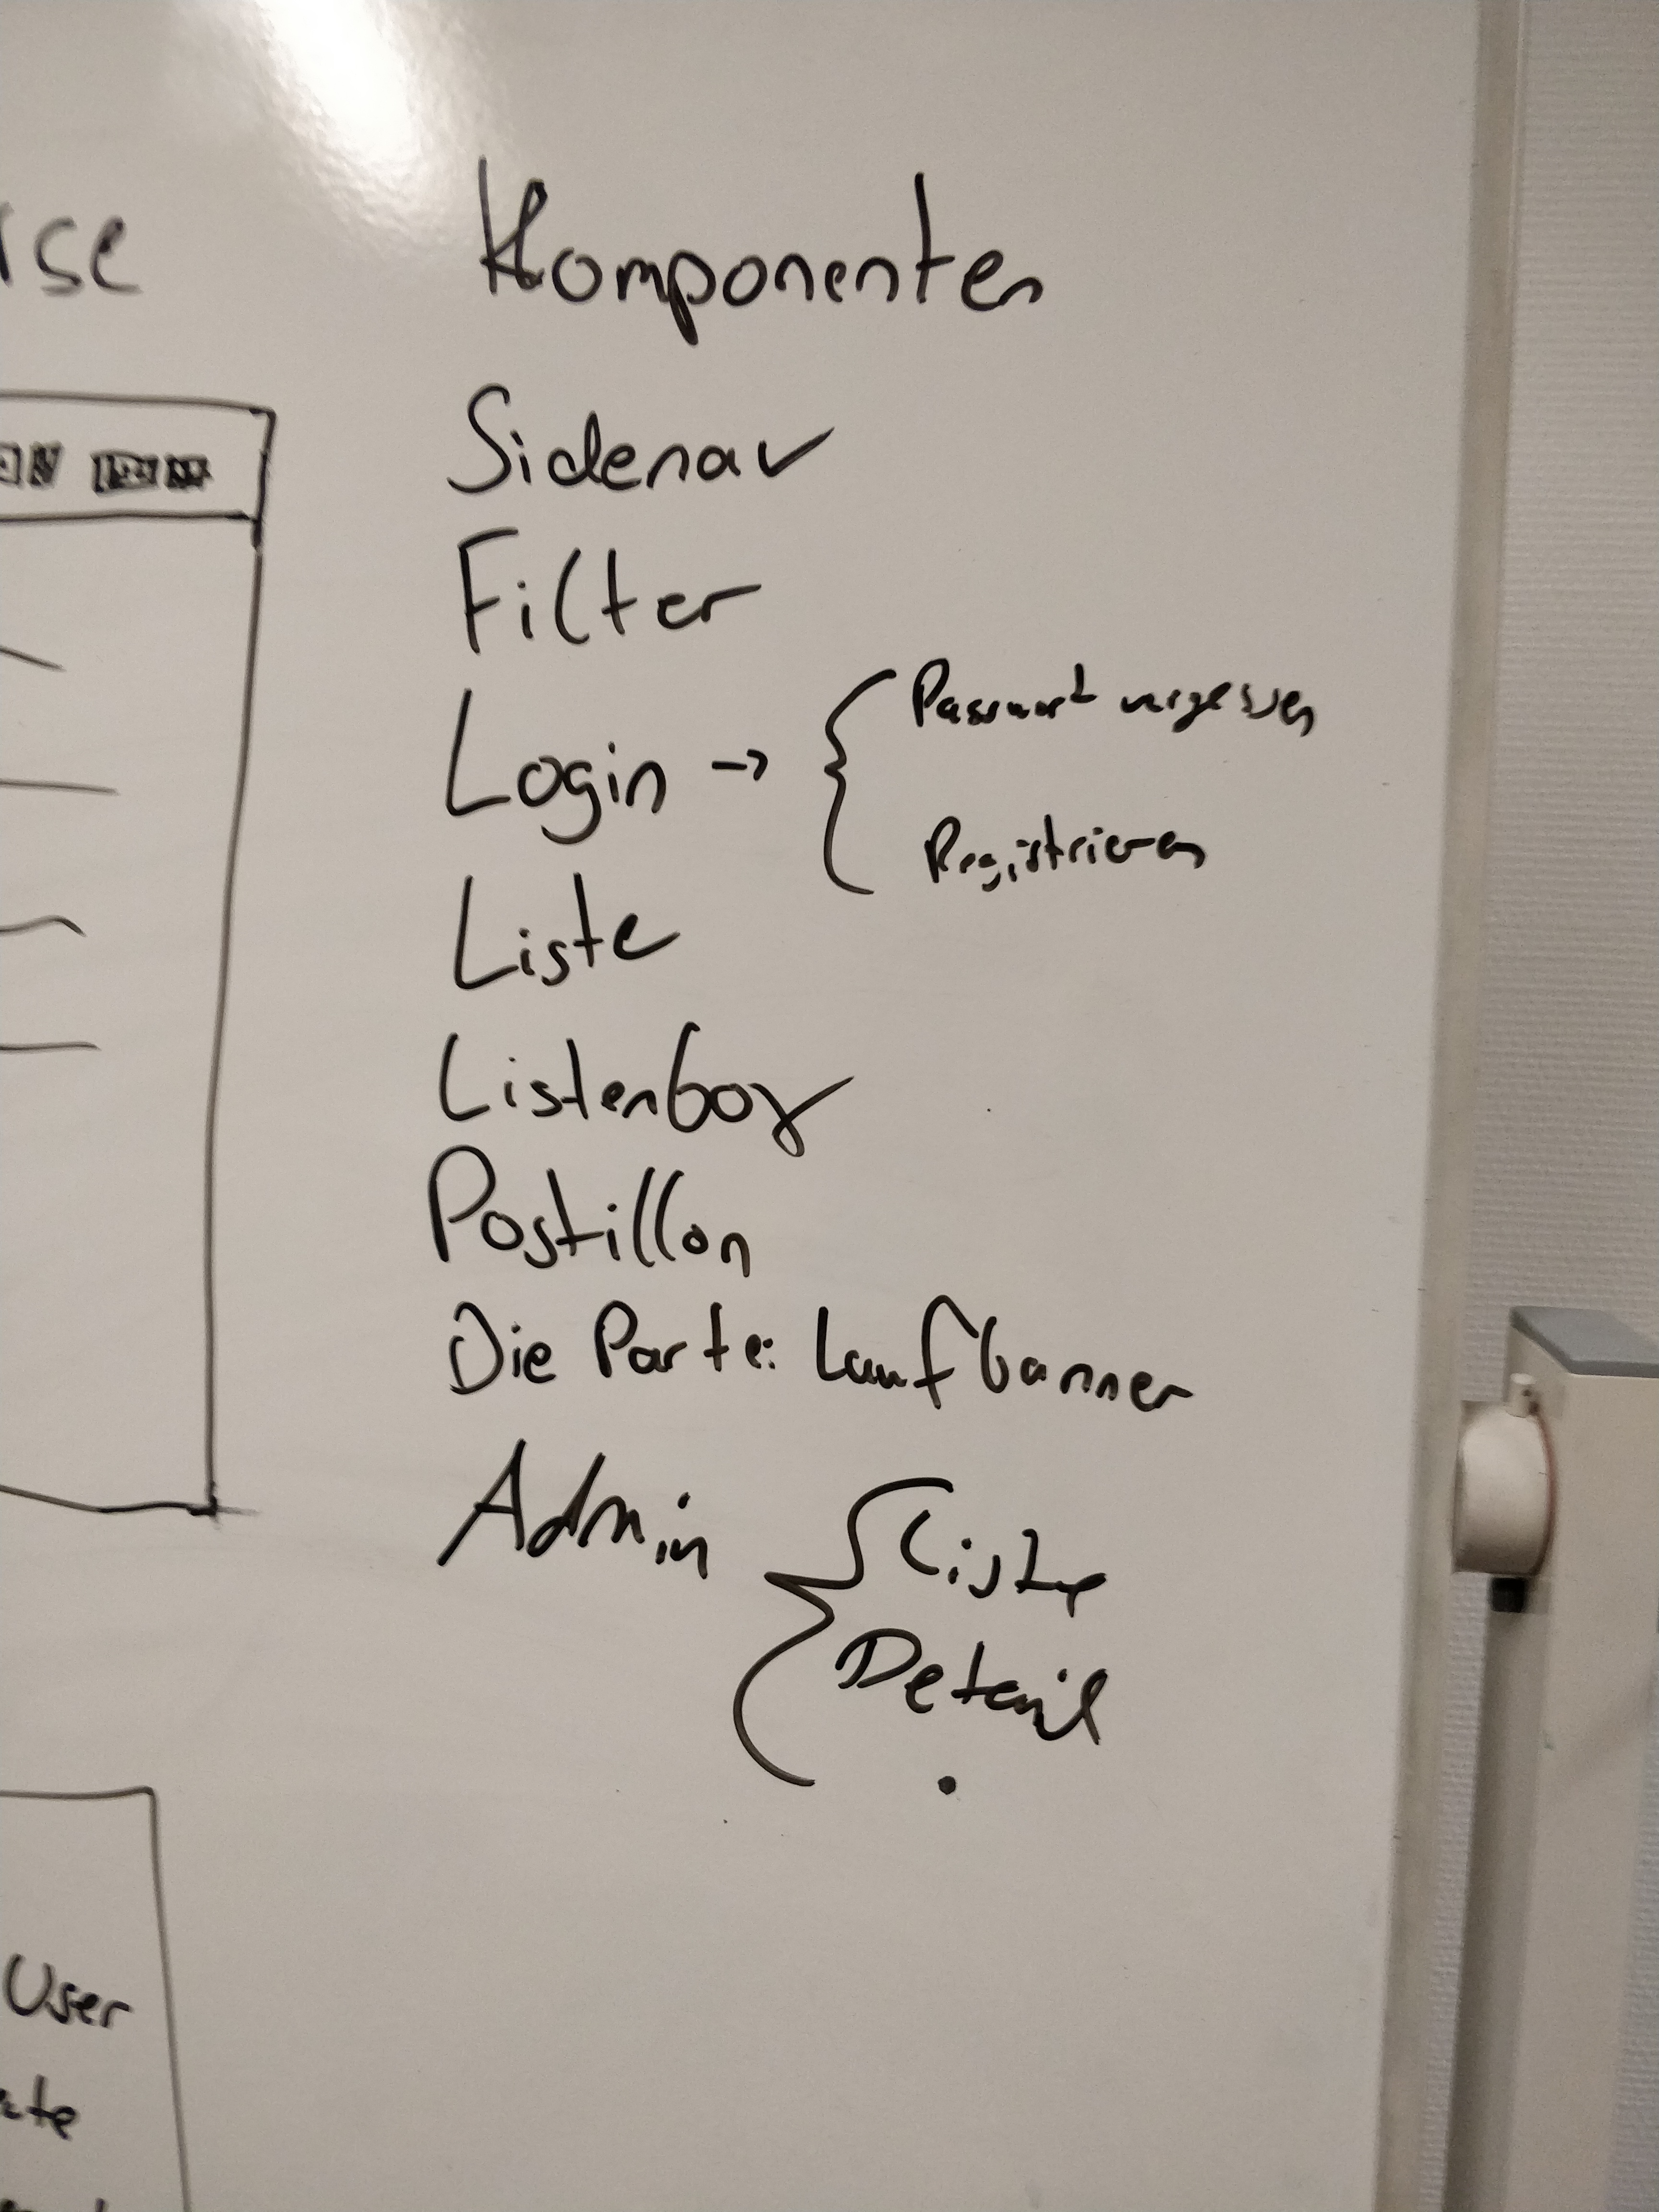 Komponenten
Sidenav
Filter
Login -> { Passwort vergessen
Registrieren
Liste
Listenbox
Postillon
Die Partei Laufbanner
Admin { Liste
Detail
.
User